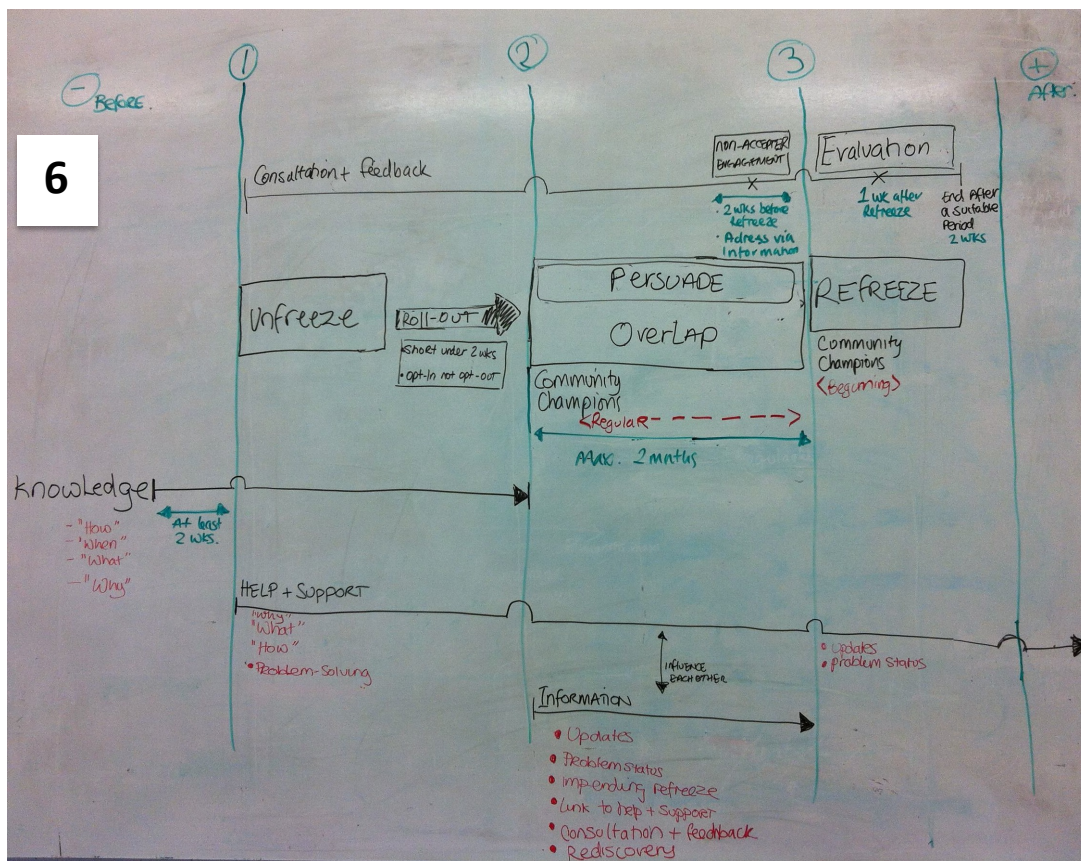 1
2
3
−
Before.
+
After:
6
Consultation + feedback
NON-ACCEPTER
ENGAGEMENT
Evaluation
• 2 wks before
refreeze
• Adress via
information
1 wk after
Refreeze
End After
a suitable
Period
2 wks
Unfreeze
ROLL-OUT
• Short under 2 wks
• Opt-In not opt-out
PERSUADE
OVERLAP
REFREEZE
Community
Champions
<Regular - - - - >
Max. 2 mnths
Community
Champions
<Beginning>
Knowledge
At least
2 wks.
- "How"
- "When"
- "What"
- "Why"
HELP + SUPPORT
"Why"
"What"
"How"
• Problem-Solving
INFLUENCE
EACH OTHER
• Updates
• problem status
INFORMATION
• Updates
• Problem status
• Impending refreeze
• Link to help + Support
• Consultation + feedback
• Rediscovery